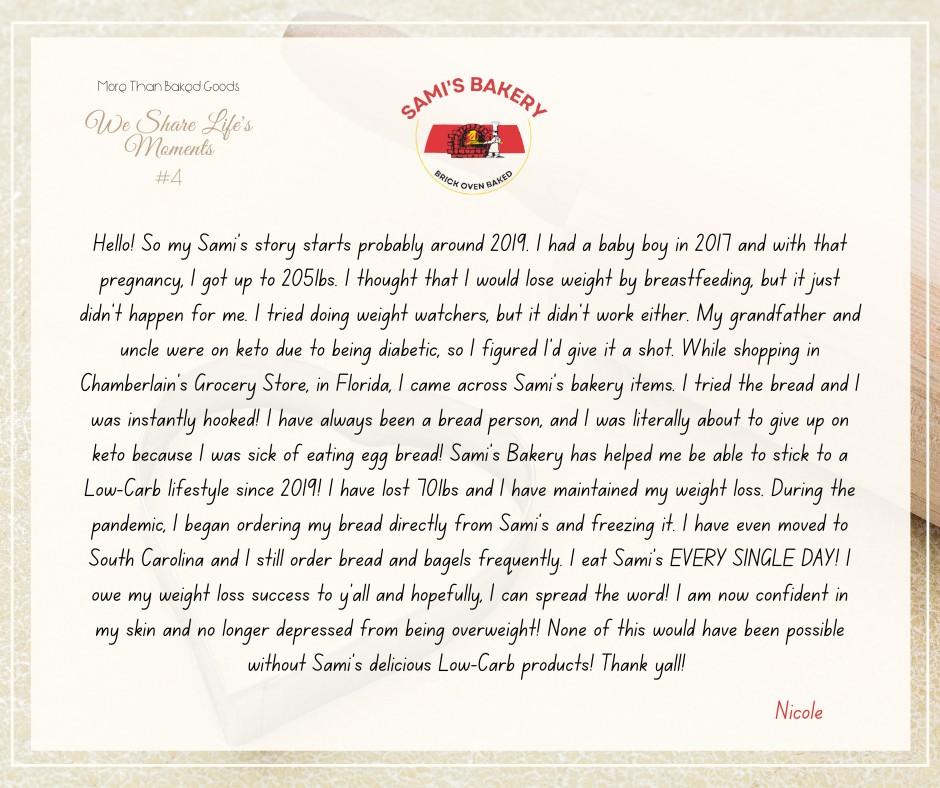 More Than Baked Goods
We Share Life's
Moments
#4
SAMI'S BAKERY
BRICK OVEN BAKED
Hello! So my Sami's story starts probably around 2019. I had a baby boy in 2017 and with that
pregnancy, I got up to 205lbs. I thought that I would lose weight by breastfeeding, but it just
didn't happen for me. I tried doing weight watchers, but it didn't work either. My grandfather and
uncle were on keto due to being diabetic, so I figured I'd give it a shot. While shopping in
Chamberlain's Grocery Store, in Florida, I came across Sami's bakery items. I tried the bread and I
was instantly hooked! I have always been a bread person, and I was literally about to give up on
keto because I was sick of eating egg bread! Sami's Bakery has helped me be able to stick to a
Low-Carb lifestyle since 2019! I have lost 70lbs and I have maintained my weight loss. During the
pandemic, I began ordering my bread directly from Sami's and freezing it. I have even moved to
South Carolina and I still order bread and bagels frequently. I eat Sami's EVERY SINGLE DAY! I
owe my weight loss success to y'all and hopefully, I can spread the word! I am now confident in
my skin and no longer depressed from being overweight! None of this would have been possible
without Sami's delicious Low-Carb products! Thank yall!
Nicole